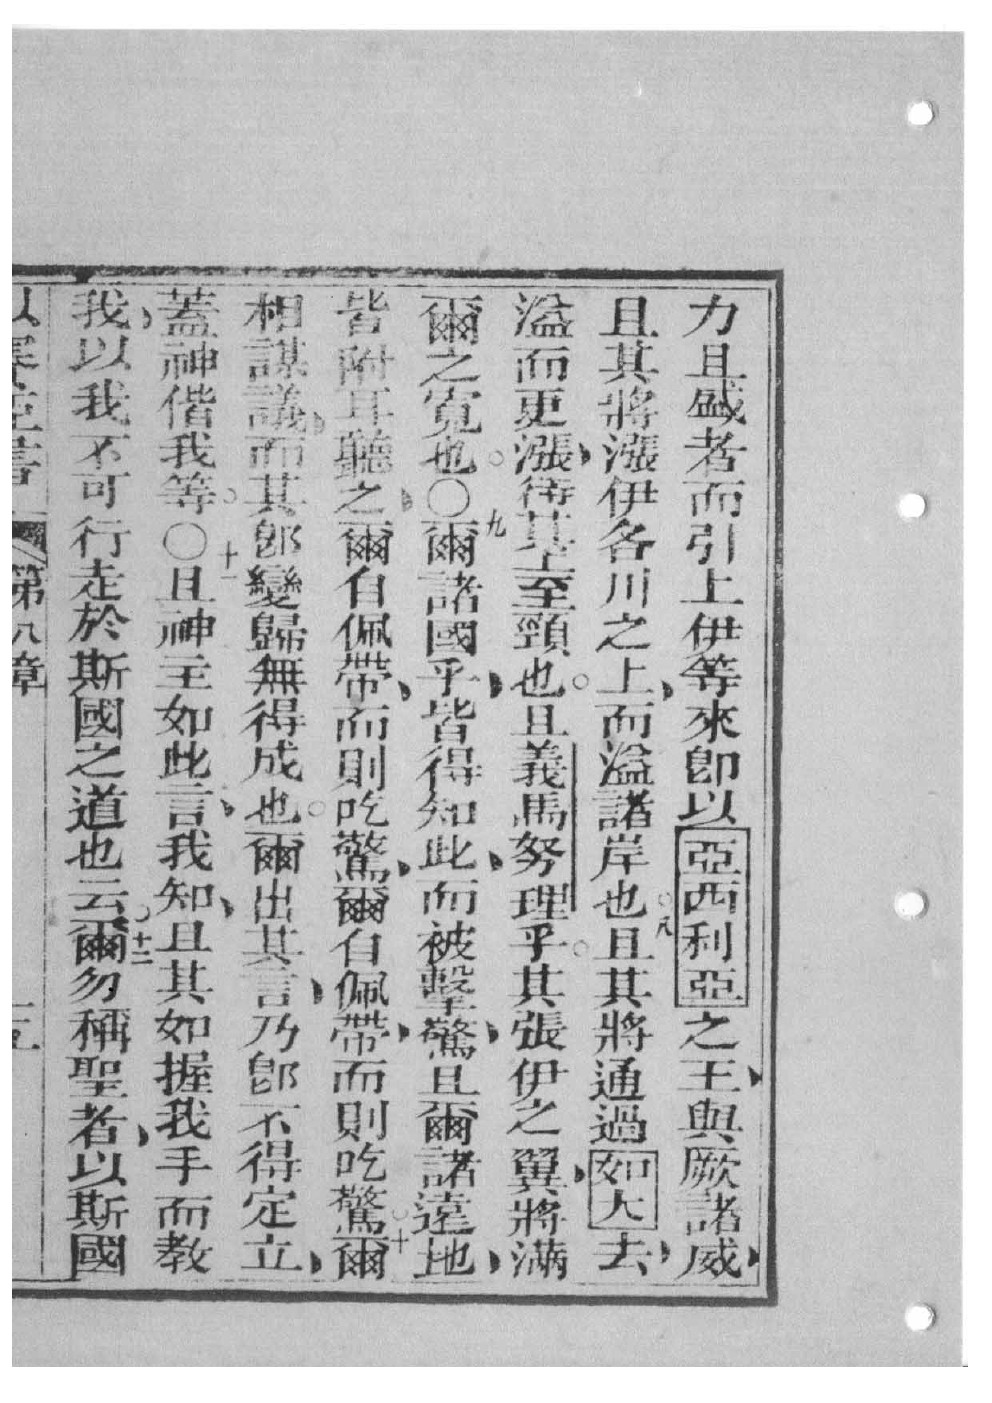 力且盛者而引上伊等來卽以亞西利亞之王與厥諸威
且其將漲伊各川之上而溢諸岸也○八且其將通過如大去
溢而更漲待其上至頸也○且義馬努理乎○其張伊之翼將滿
爾之寬也○〇九爾諸國乎皆得知此而被擊驚且爾諸遠地
皆附耳聽之爾自佩帶而則吃驚爾自佩帶而則吃驚○十爾
相謀議而其卽變歸無得成也○爾出其言乃卽不得定立
蓋神偕我等○〇十一且神主如此言我知且其如握我手而教
我以我不可行走於斯國之道也云○十二爾勿稱聖者以斯國
第八章